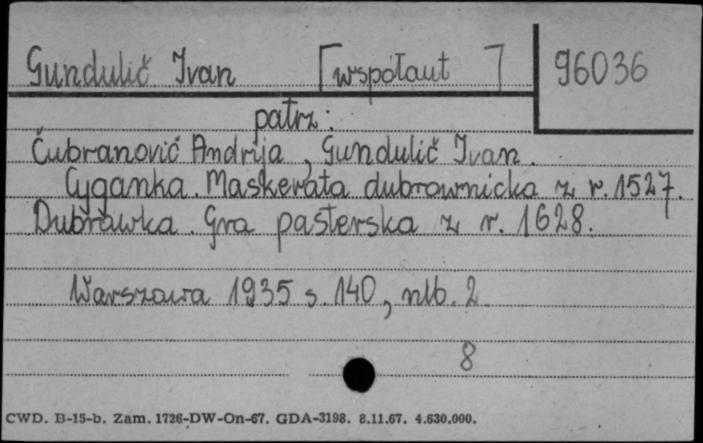 Gundulić Ivan [współaut] 96036
patrz:
Čubranović Andrija, Gundulić Ivan.
Cyganka. Maskerata dubrownicka z r. 1527.
Dubrawka. Gra pasterska z r. 1628.
Warszawa 1935 s. 140, nlb. 2
8
CWD. B-15-b. Zam. 1726-DW-On-67. GDA-3198. 8.11.67. 4.630.000.